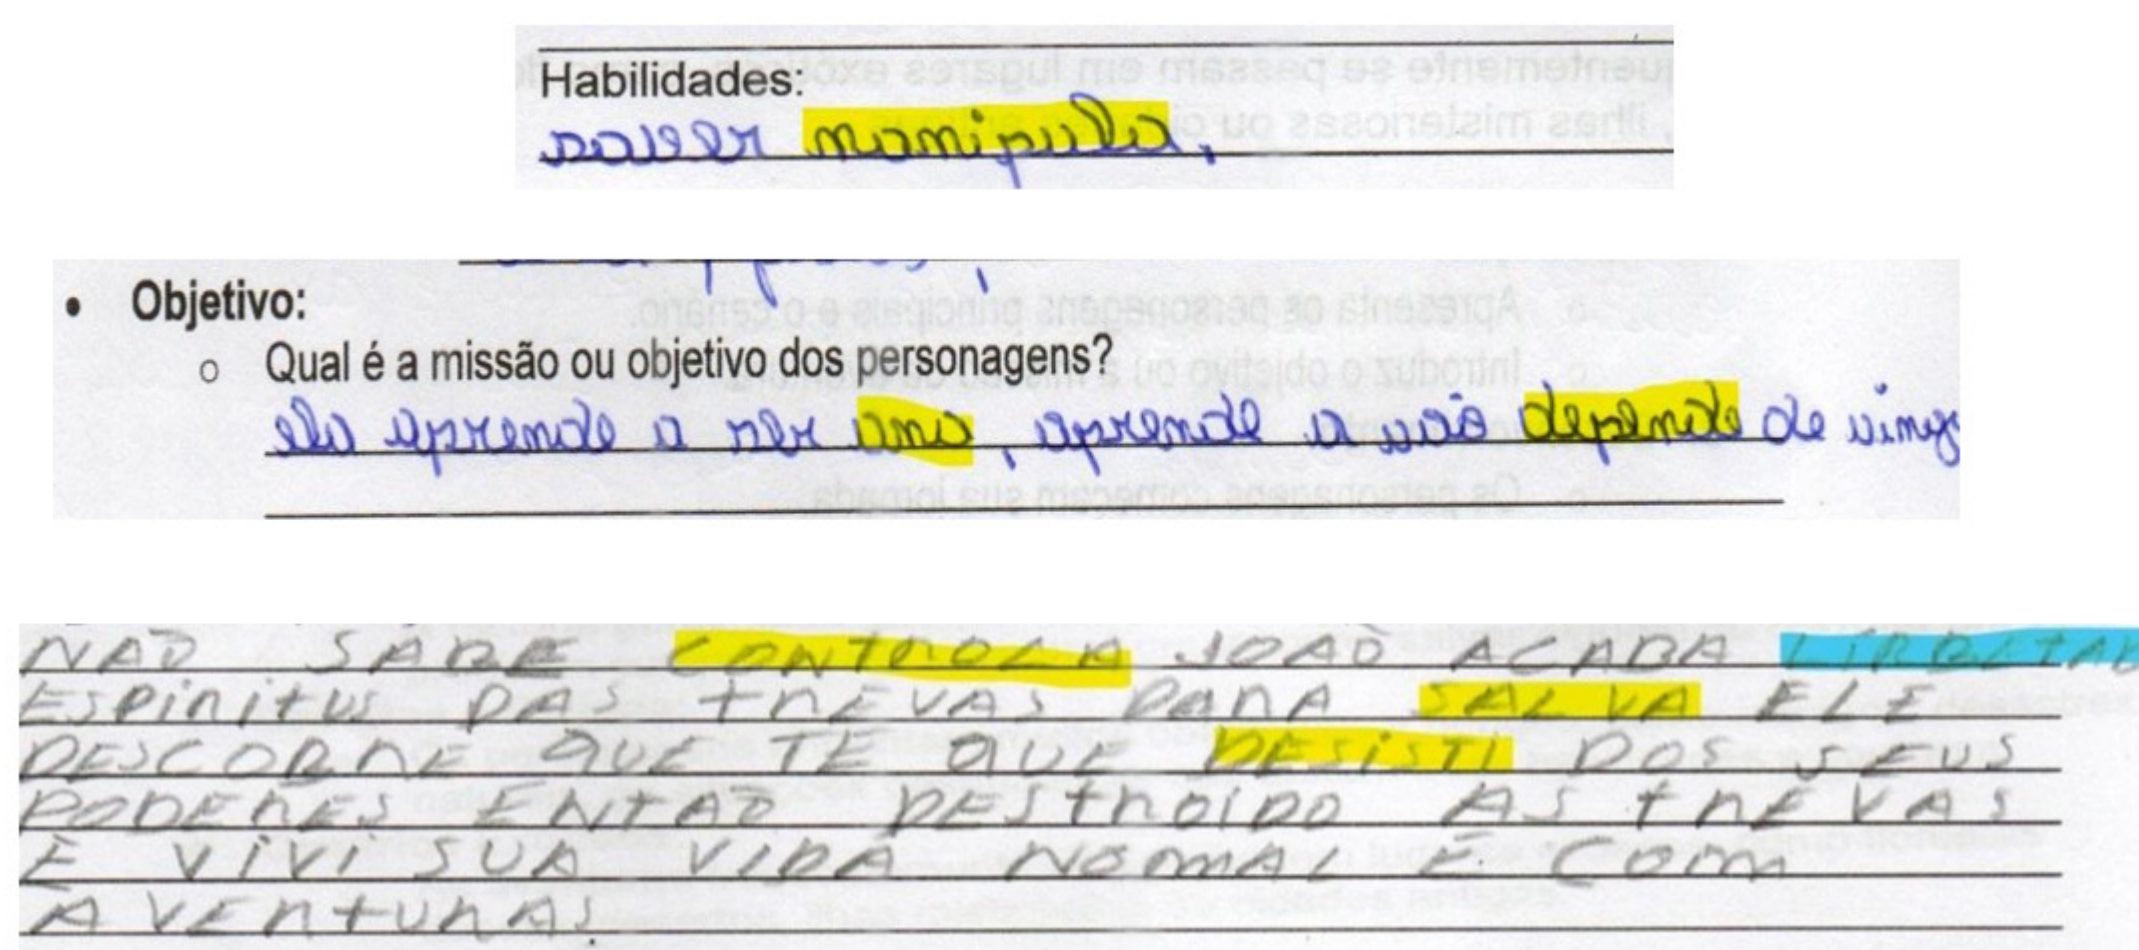 Habilidades:
manipula,
Objetivo:
Qual é a missão ou objetivo dos personagens?
ela aprende a ser ama, aprende a não depende de
NAO SABE CONTROLA JOAO ACABA
ESPIRITUS DAS TREVAS PARA SALVA ELE
DESCOBRE QUE TE QUE DESISTI DOS SEUS
PODERES ENTAO DESTROIDO AS TREVAS
E VIVI SUA VIDA NORMAL E COM
AVENTURAS.